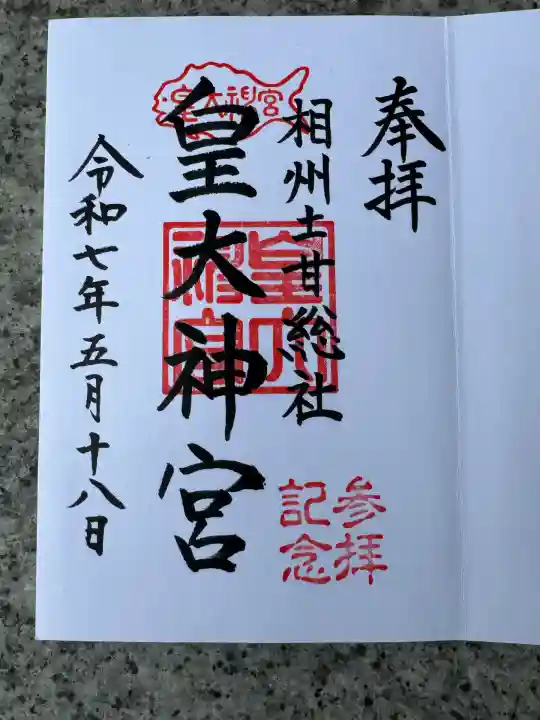 奉拝
相州土甘総社
参拝
記念
皇大神宮
皇大神宮
皇大
神宮
令和七年五月十八日